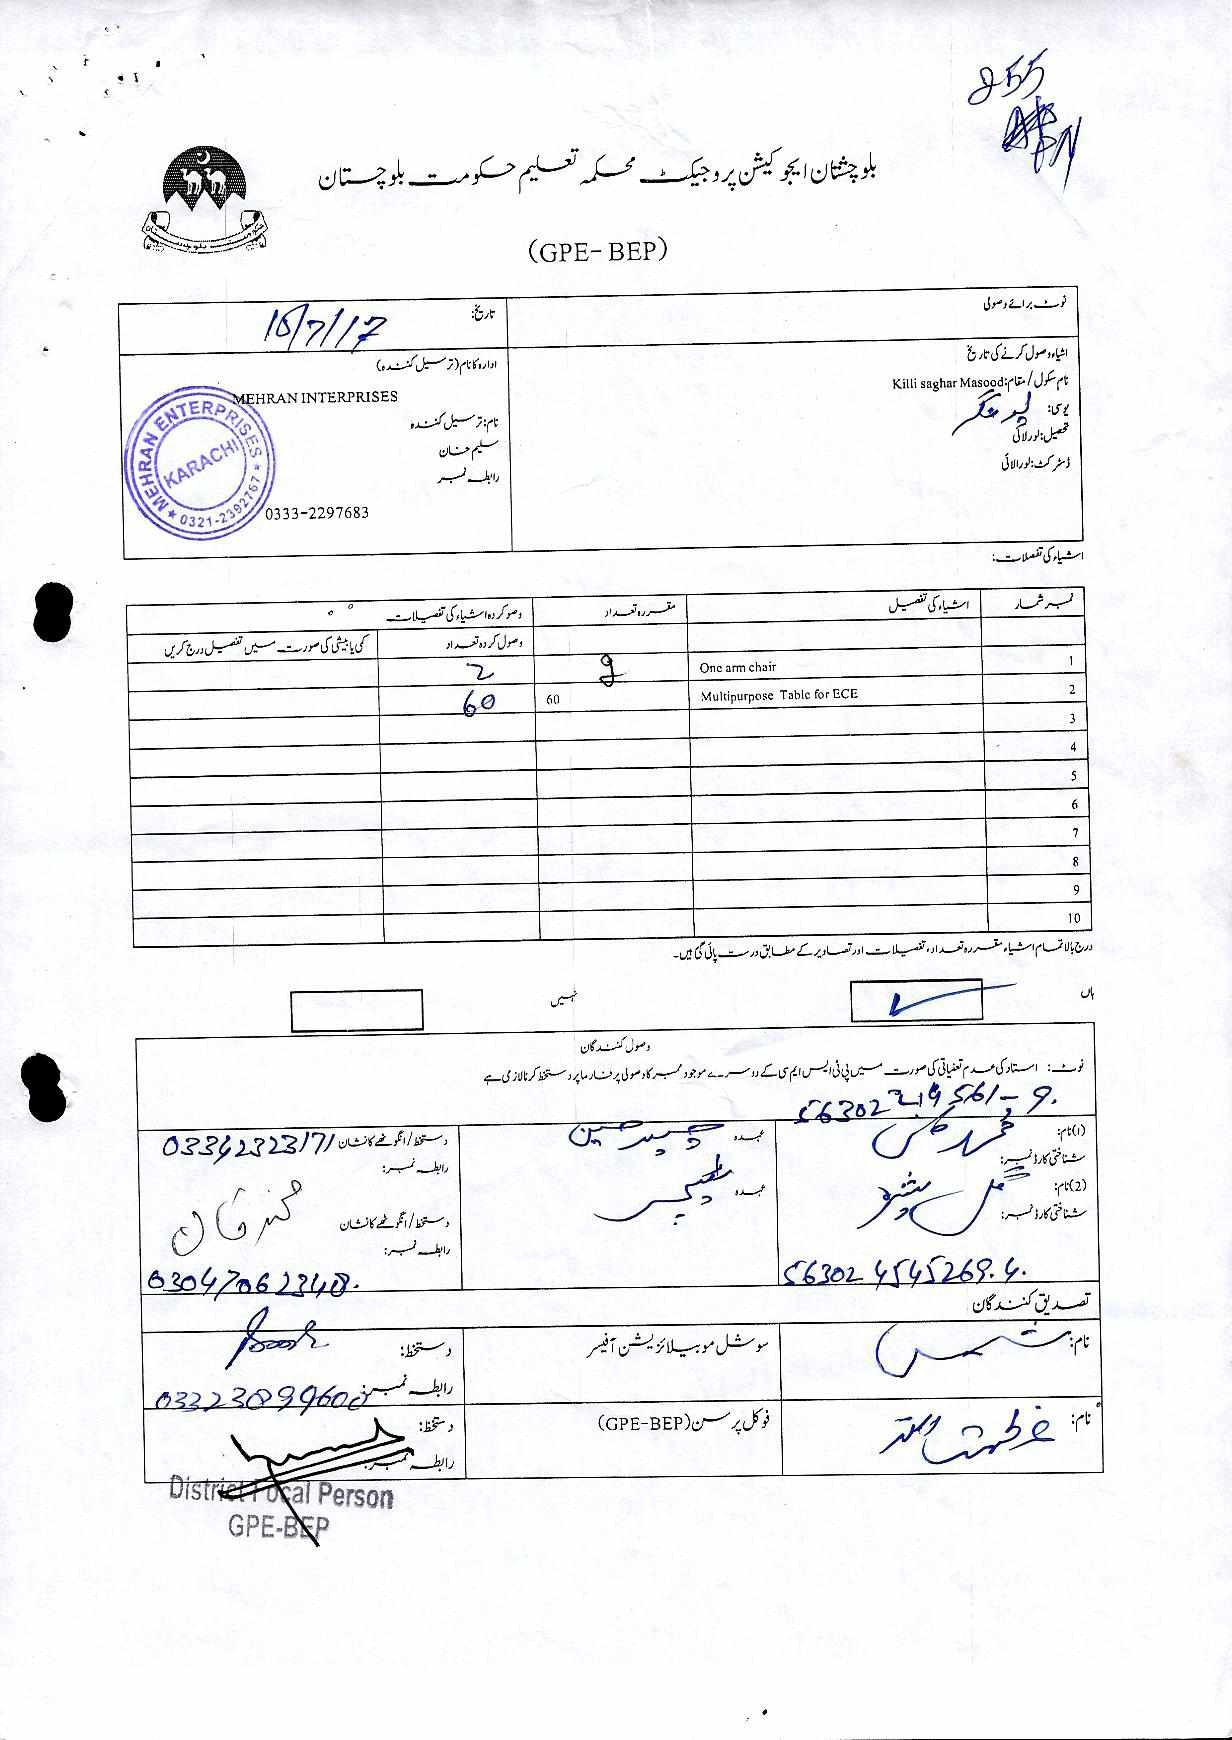 855
بلوچستان ایجوکیشن پروجیکٹ محکمہ تعلیم حکومت بلوچستان
(GPE- BEP)
نوٹ برائے وصولی
تاریخ: 15/7/17
اشیاء وصول کرنے کی تاریخ
نام سکول/مقام: Killi saghar Masood
یوسی:
تحصیل: لورلائی
ڈسٹرکٹ: لورالائی
ادارہ کا نام (ترسیل کنندہ)
MEHRAN INTERPRISES
نام: ترسیل کنندہ
سلیم خان
رابطہ نمبر
0333-2297683
MEHRAN ENTERPRISES
KARACHI
★ 0321-2392767 ★
اشیاء کی تفصلات:
نمبر شمار اشیاء کی تفصیل مقررہ تعداد وصو کردہ اشیاء کی تفصیلات
وصول کردہ تعداد کمی یا بیشی کی صورت میں تفصیل درج کریں
1 One arm chair 2 2
2 Multipurpose Table for ECE 60 60
3
4
5
6
7
8
9
10
درج بالا تمام اشیاء مقررہ تعداد، تفصیلات اور تصاویر کے مطابق درست پائی گئی ہیں۔
ہاں ✓ نہیں
وصول کنندگان
نوٹ: استاد کی عدم تعیناتی کی صورت میں پی ٹی ایس ایم سی کے دوسرے موجود ممبر کا وصولی پر فارم پر دستخط کرنا لازمی ہے
56302 219561-9.
(1) نام: محمد عہدہ چیرمین دستخط/انگوٹھے کا نشان 03342323171
شناختی کارڈ نمبر: رابطہ نمبر:
(2) نام: عہدہ ٹیچر دستخط/انگوٹھے کا نشان
شناختی کارڈ نمبر: رابطہ نمبر:
56302 4545269.4. 03047062348.
تصدیق کنندگان
نام: شمس سوشل موبیلائزیشن آفیسر دستخط:
رابطہ نمبر: 03323899600
نام: فوکل پرسن (GPE-BEP) دستخط:
رابطہ نمبر:
District Focal Person
GPE-BEP